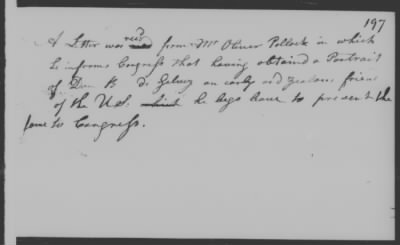 197
A Letter was recd from Mr Oliver Pollock in which
he informs Congress that having obtaind a Portrait
of Don B de Galvez an early and zealous friend
of the U.S. he begs leave to present the
same to Congress.